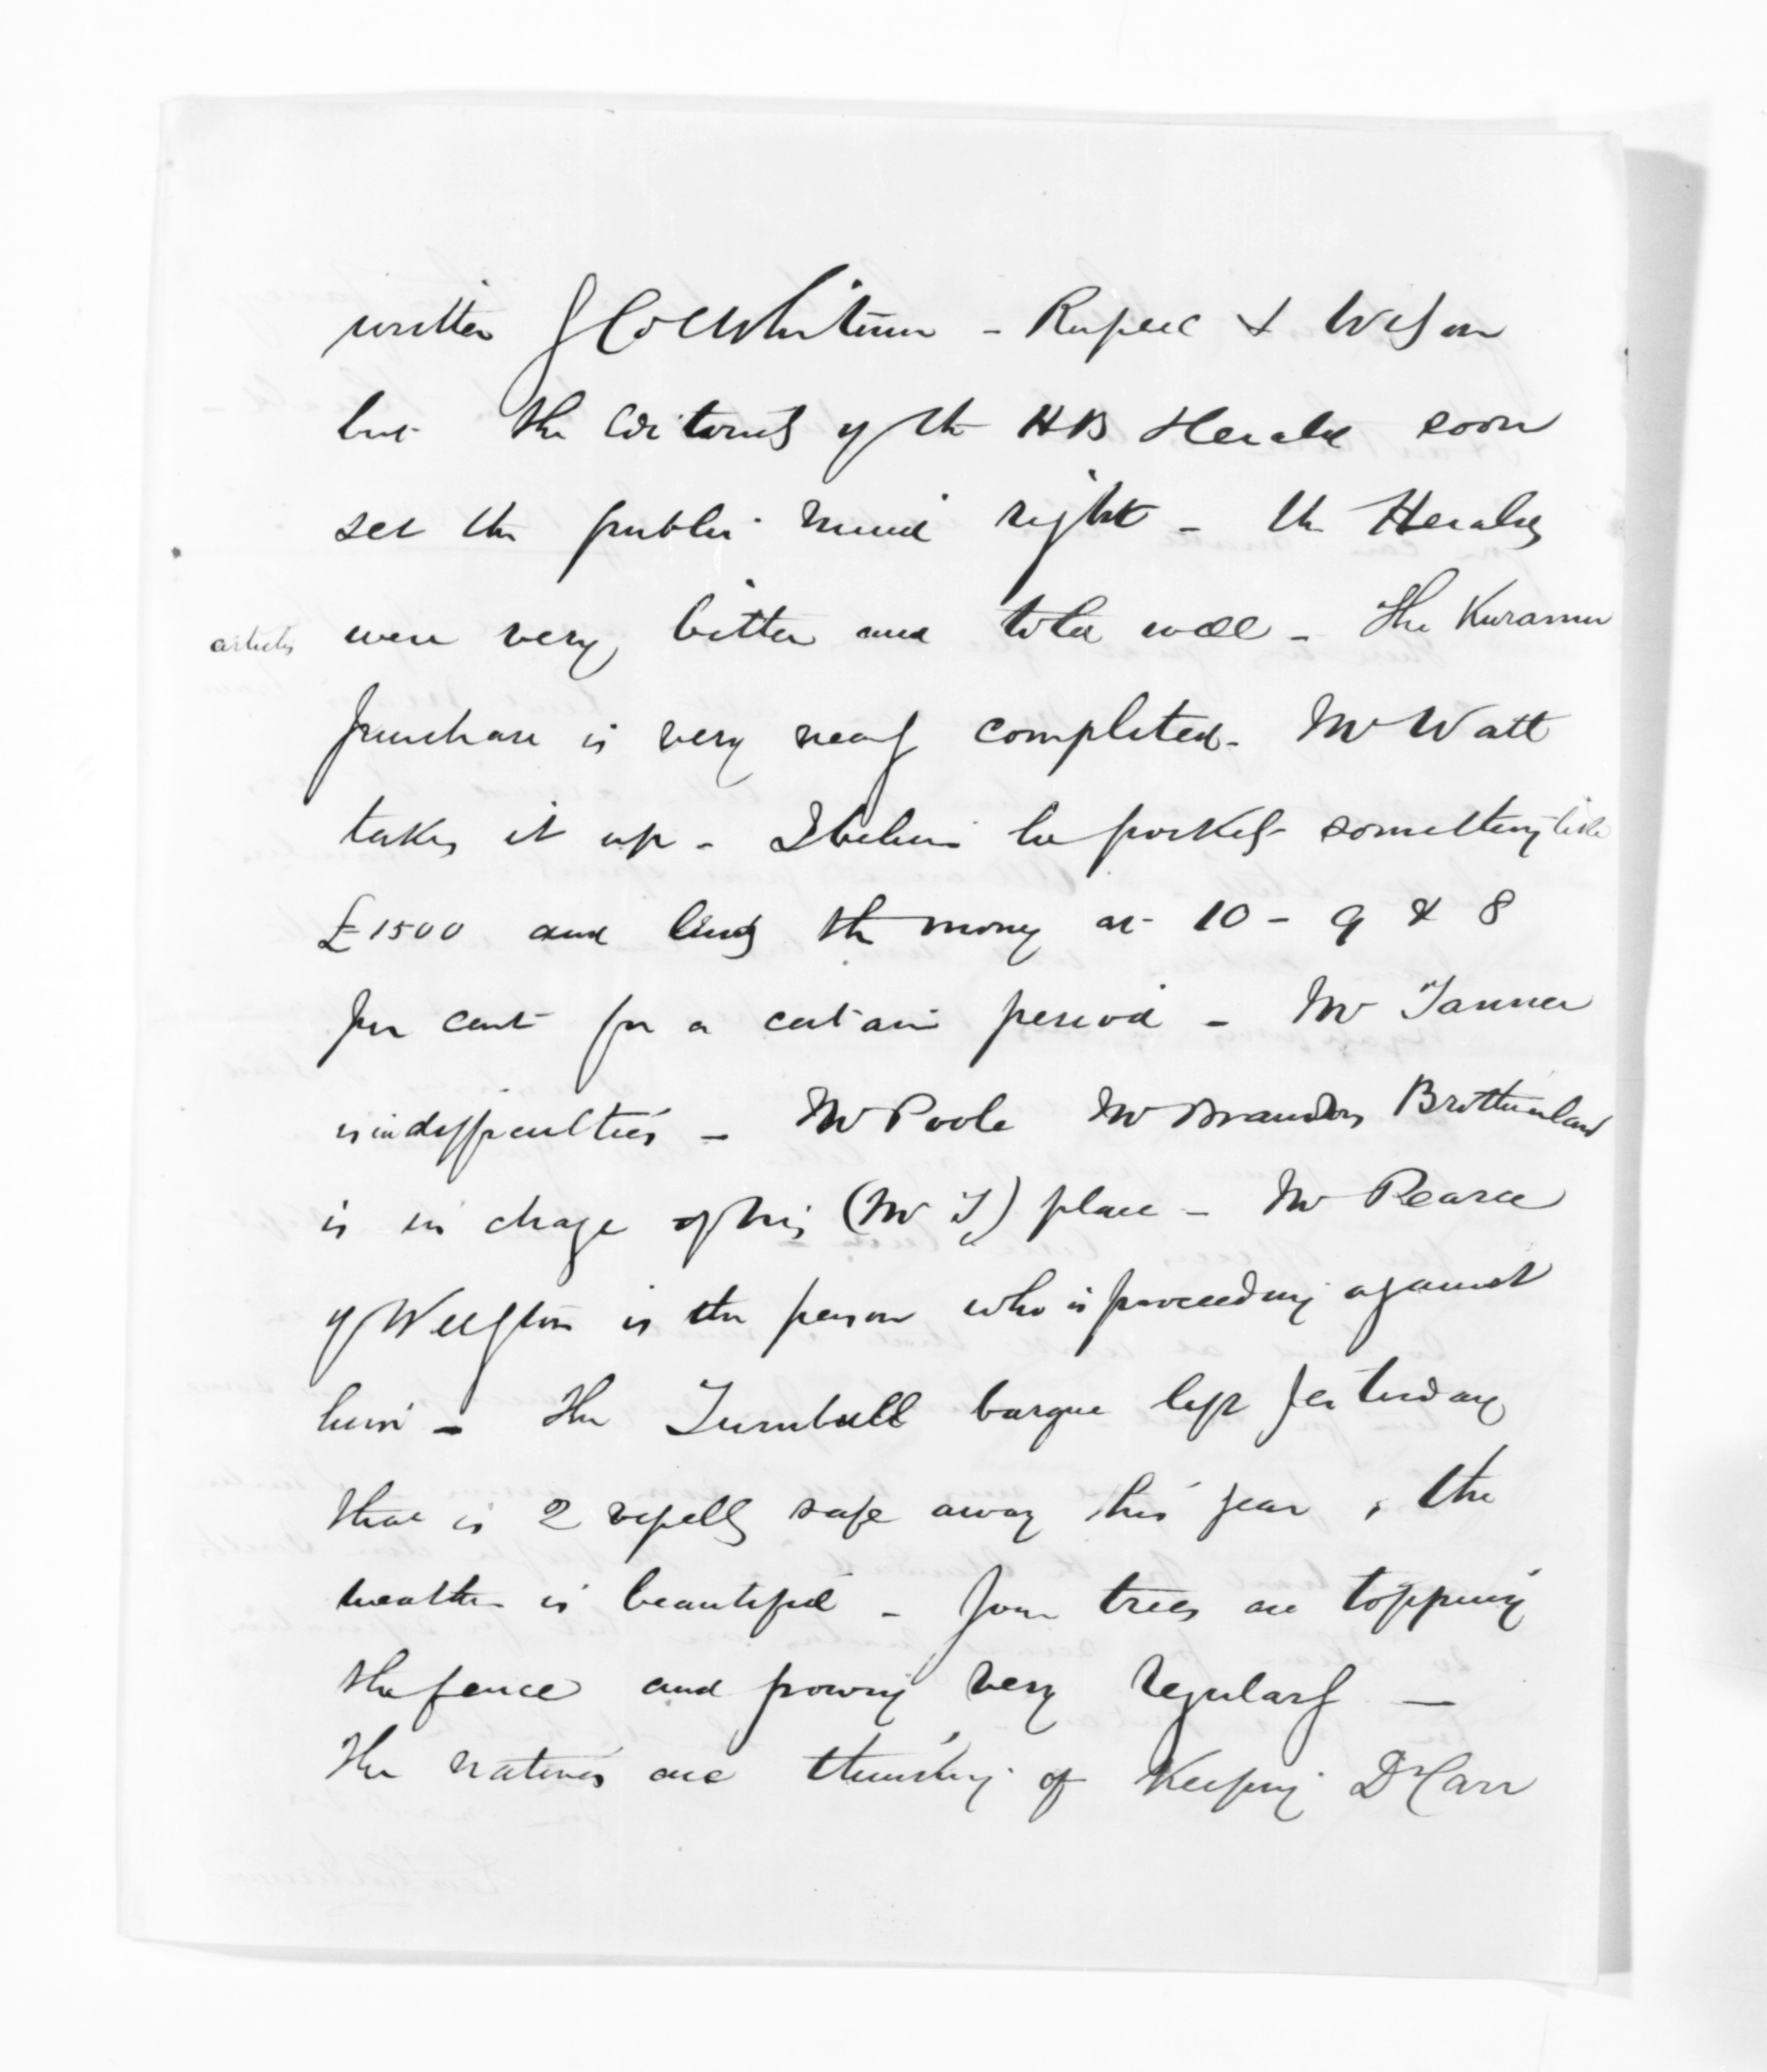 written by Col Whitmore - Russell & Wilson
but the Editorials of the HB Herald soon
set the public mind right - the Heralds
articles were very bitter and told well - The Kuramu
purchase is very nearly completed - Mr Watt
takes it up - I believe he pockets something like
£1500 and lends the money at 10 - 9 & 8
per cent for a certain period - Mr Tanner
is in difficulties - Mr Poole Mr Brandons Brotherinlaw
is in charge of his (Mr T) place - Mr Pearce
of Wellgton is the person who is proceeding against
him - The Turnbull barque left yesterday
that is 2 vessells safe away this year , the
weather is beautiful - your trees are topping
the fence and growing very regularly -
The natives are thinking of keeping Dr Carr